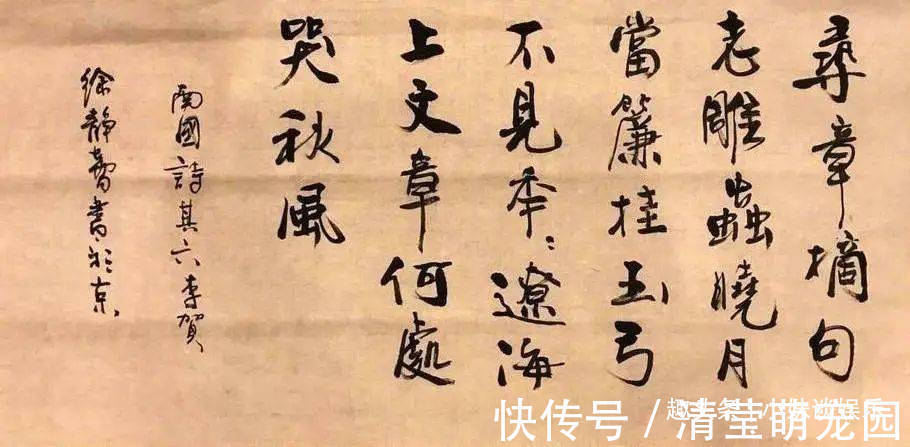 尋章摘句
老雕蟲曉月
當簾挂玉弓
不見年〻遼海
上文章何處
哭秋風
南國詩其六李賀
徐静蕾書於京
趣头条
快传号／清莹萌宠园